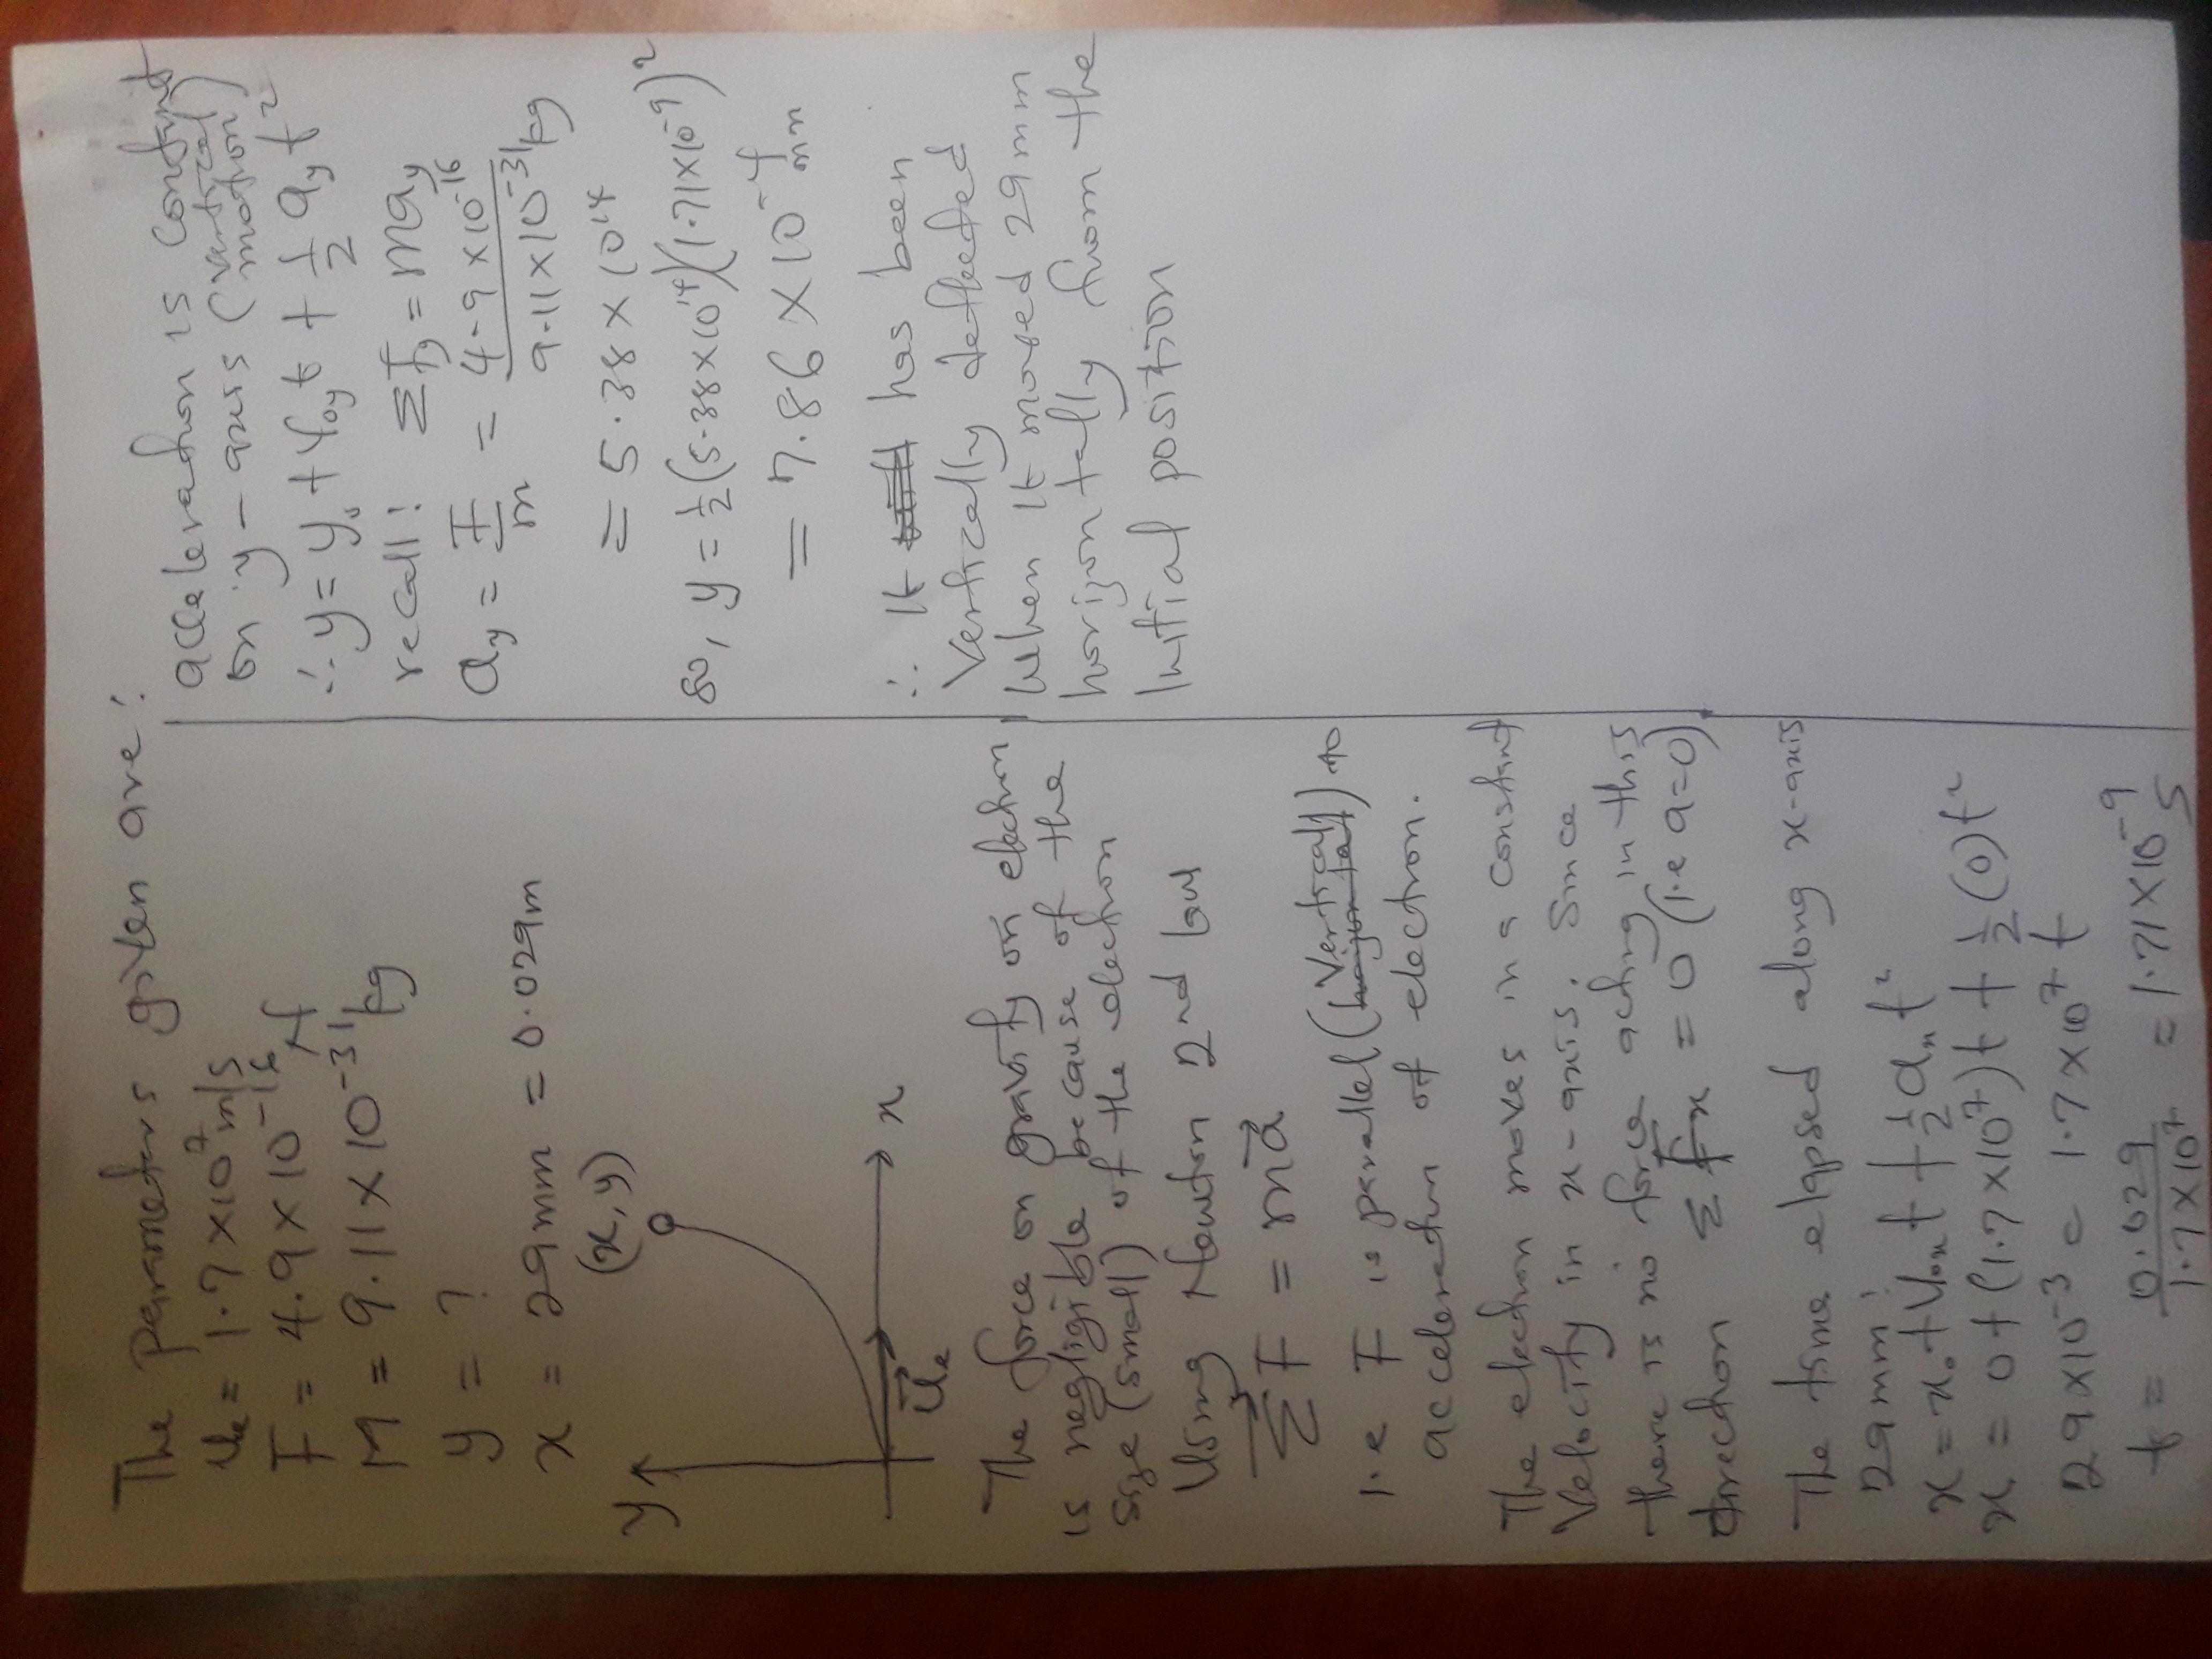 The parameters given are:
Ue = 1.7 × 10⁷ m/s
F = 4.9 × 10⁻¹⁶ N
M = 9.11 × 10⁻³¹ kg
y = ?
x = 29mm = 0.029m
(x, y)
y
x
Ue
The force on gravity on electron
is negligible because of the
size (small) of the electron
Using Newton 2nd law
ΣF = ma
i.e F is parallel (Vertical) to
acceleration of electron.
The electron moves in a constant
velocity in x-axis. Since
there is no force acting in this
direction ΣFx = 0 (i.e a=0)
The time elapsed along x-axis
29mm:
x = x₀ + U₀ₓt + ½aₓt²
x = 0 + (1.7×10⁷)t + ½(0)t²
29×10⁻³ = 1.7×10⁷ t
t = 0.029 / 1.7×10⁷ = 1.71×10⁻⁹ s
acceleration is constant
on y-axis (vertical motion)
∴ y = y₀ + V₀yt + ½ ayt²
recall: ΣFy = may
ay = F/m = 4.9×10⁻¹⁶ / 9.11×10⁻³¹ kg
= 5.38 × 10¹⁴
so, y = ½(5.38×10¹⁴)(1.71×10⁻⁹)²
= 7.86 × 10⁻⁴ mm
∴ It has been
Vertically deflected
When it moved 29mm
horizontally from the
Initial position